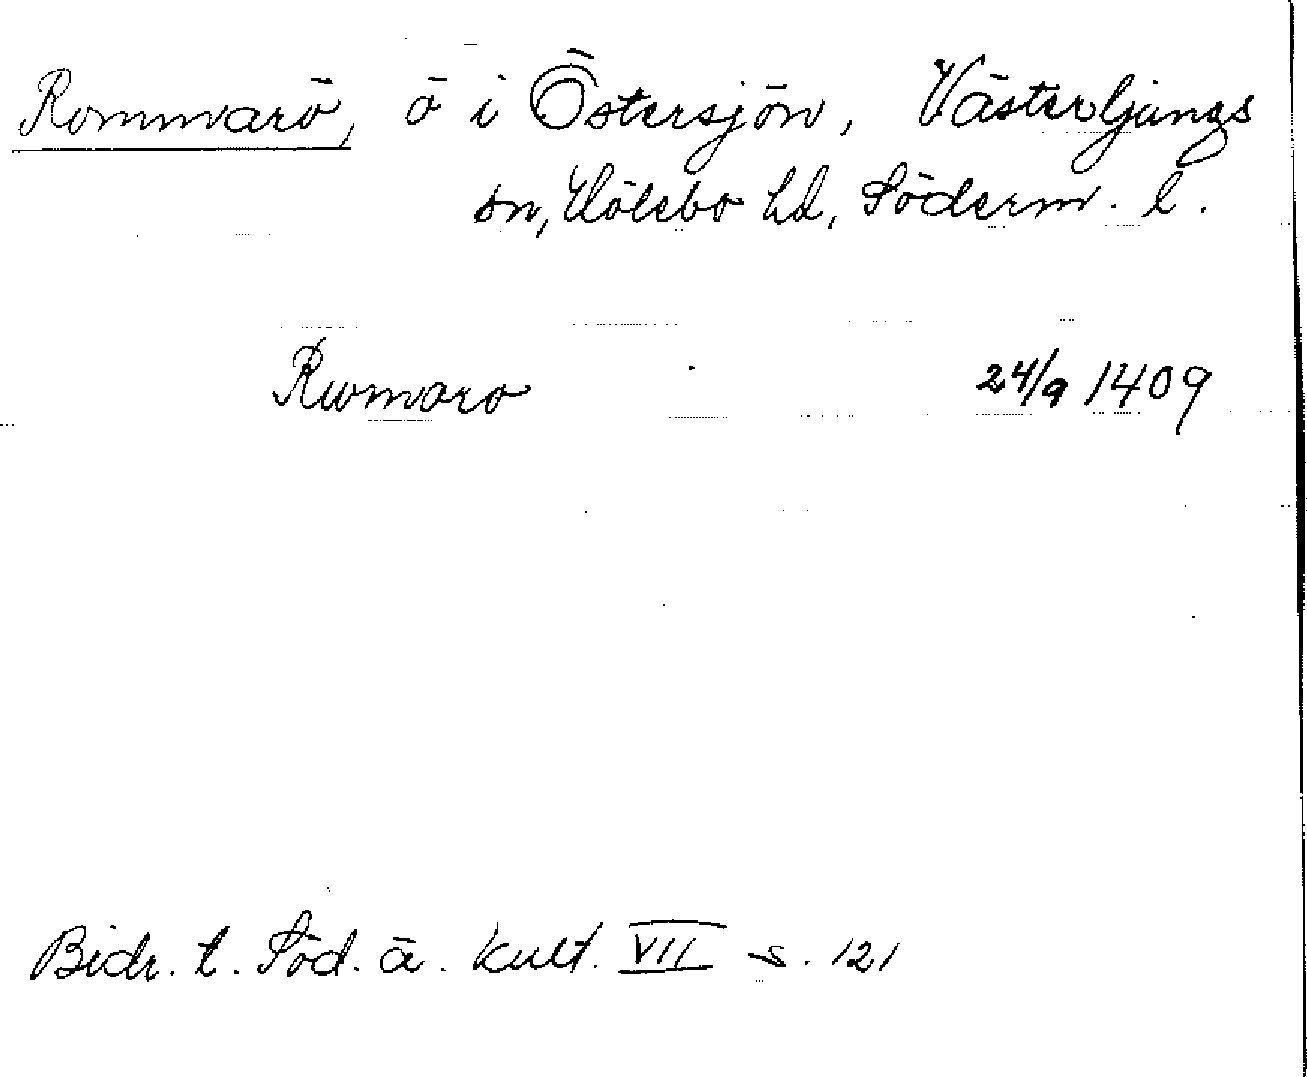 Rommarö, ö i Östersjön, Västerljungs
sn, Hölebo hd, Söderm. l.
Rumaro 24/9 1409
Bidr. t. Söd. ä. kult. VII s. 121